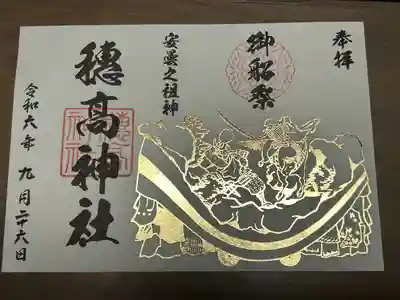 奉拝
御船祭
安曇之祖神
穂高神社
令和六年 九月二十六日